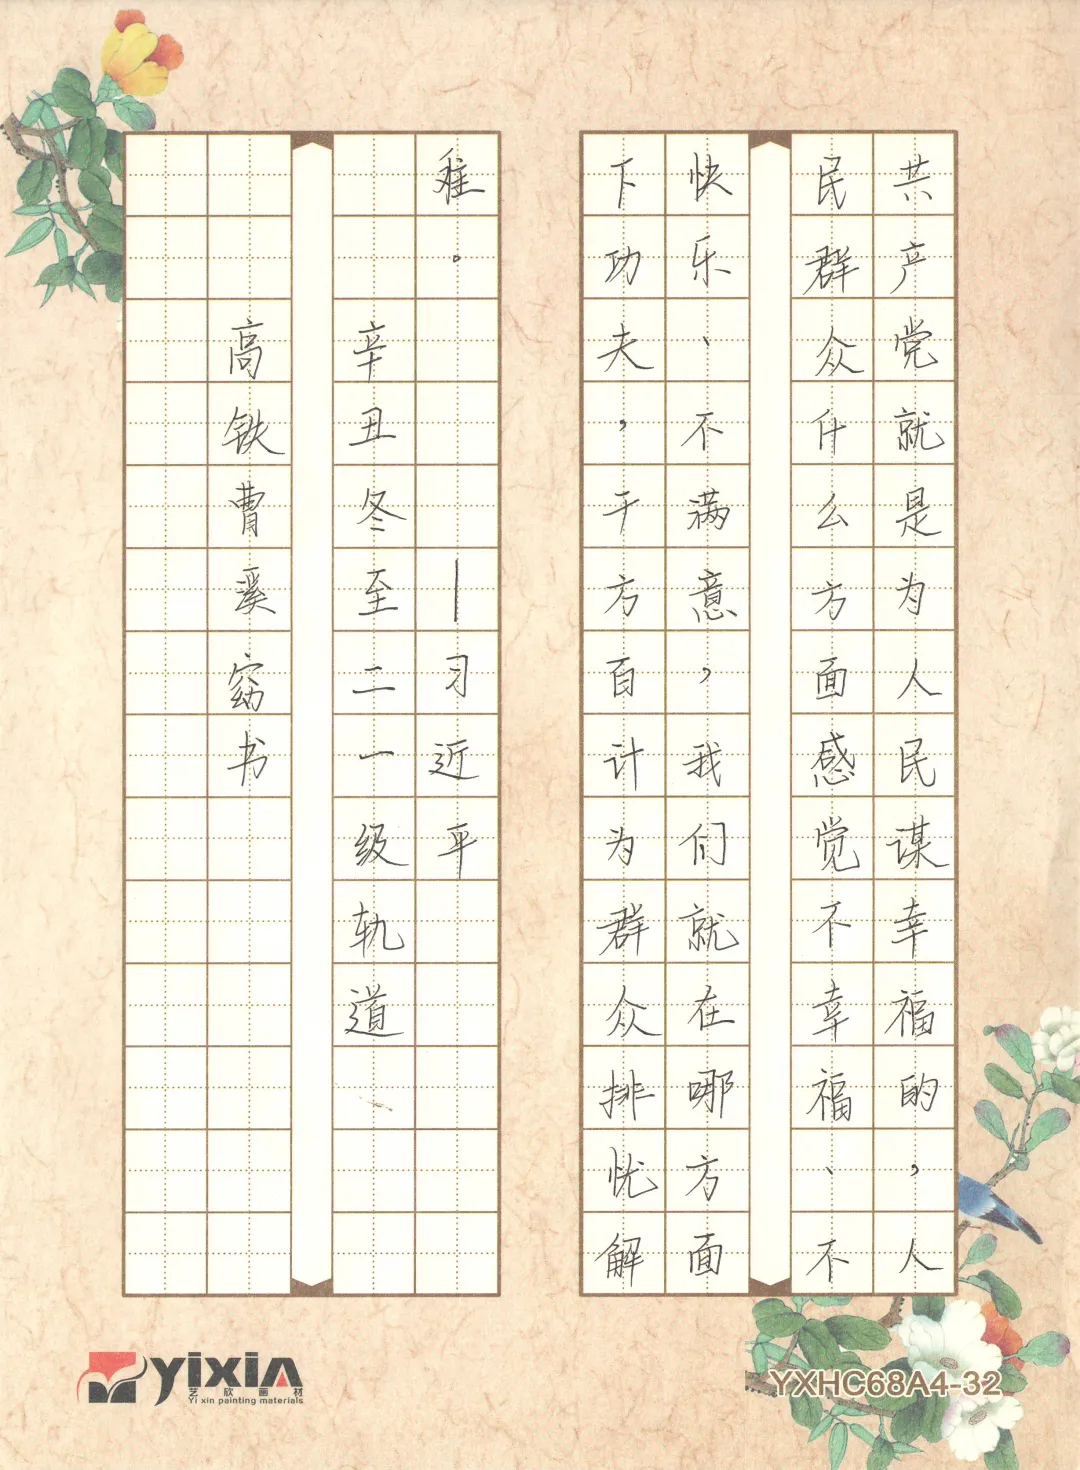 共产党就是为人民谋幸福的，人
民群众什么方面感觉不幸福、不
快乐、不满意，我们就在哪方面
下功夫，千方百计为群众排忧解
难。—习近平
辛丑冬至二一级轨道
高铁曹溪窈书
yixin
艺欣画材
Yi xin painting materials
YXHC68A4-32